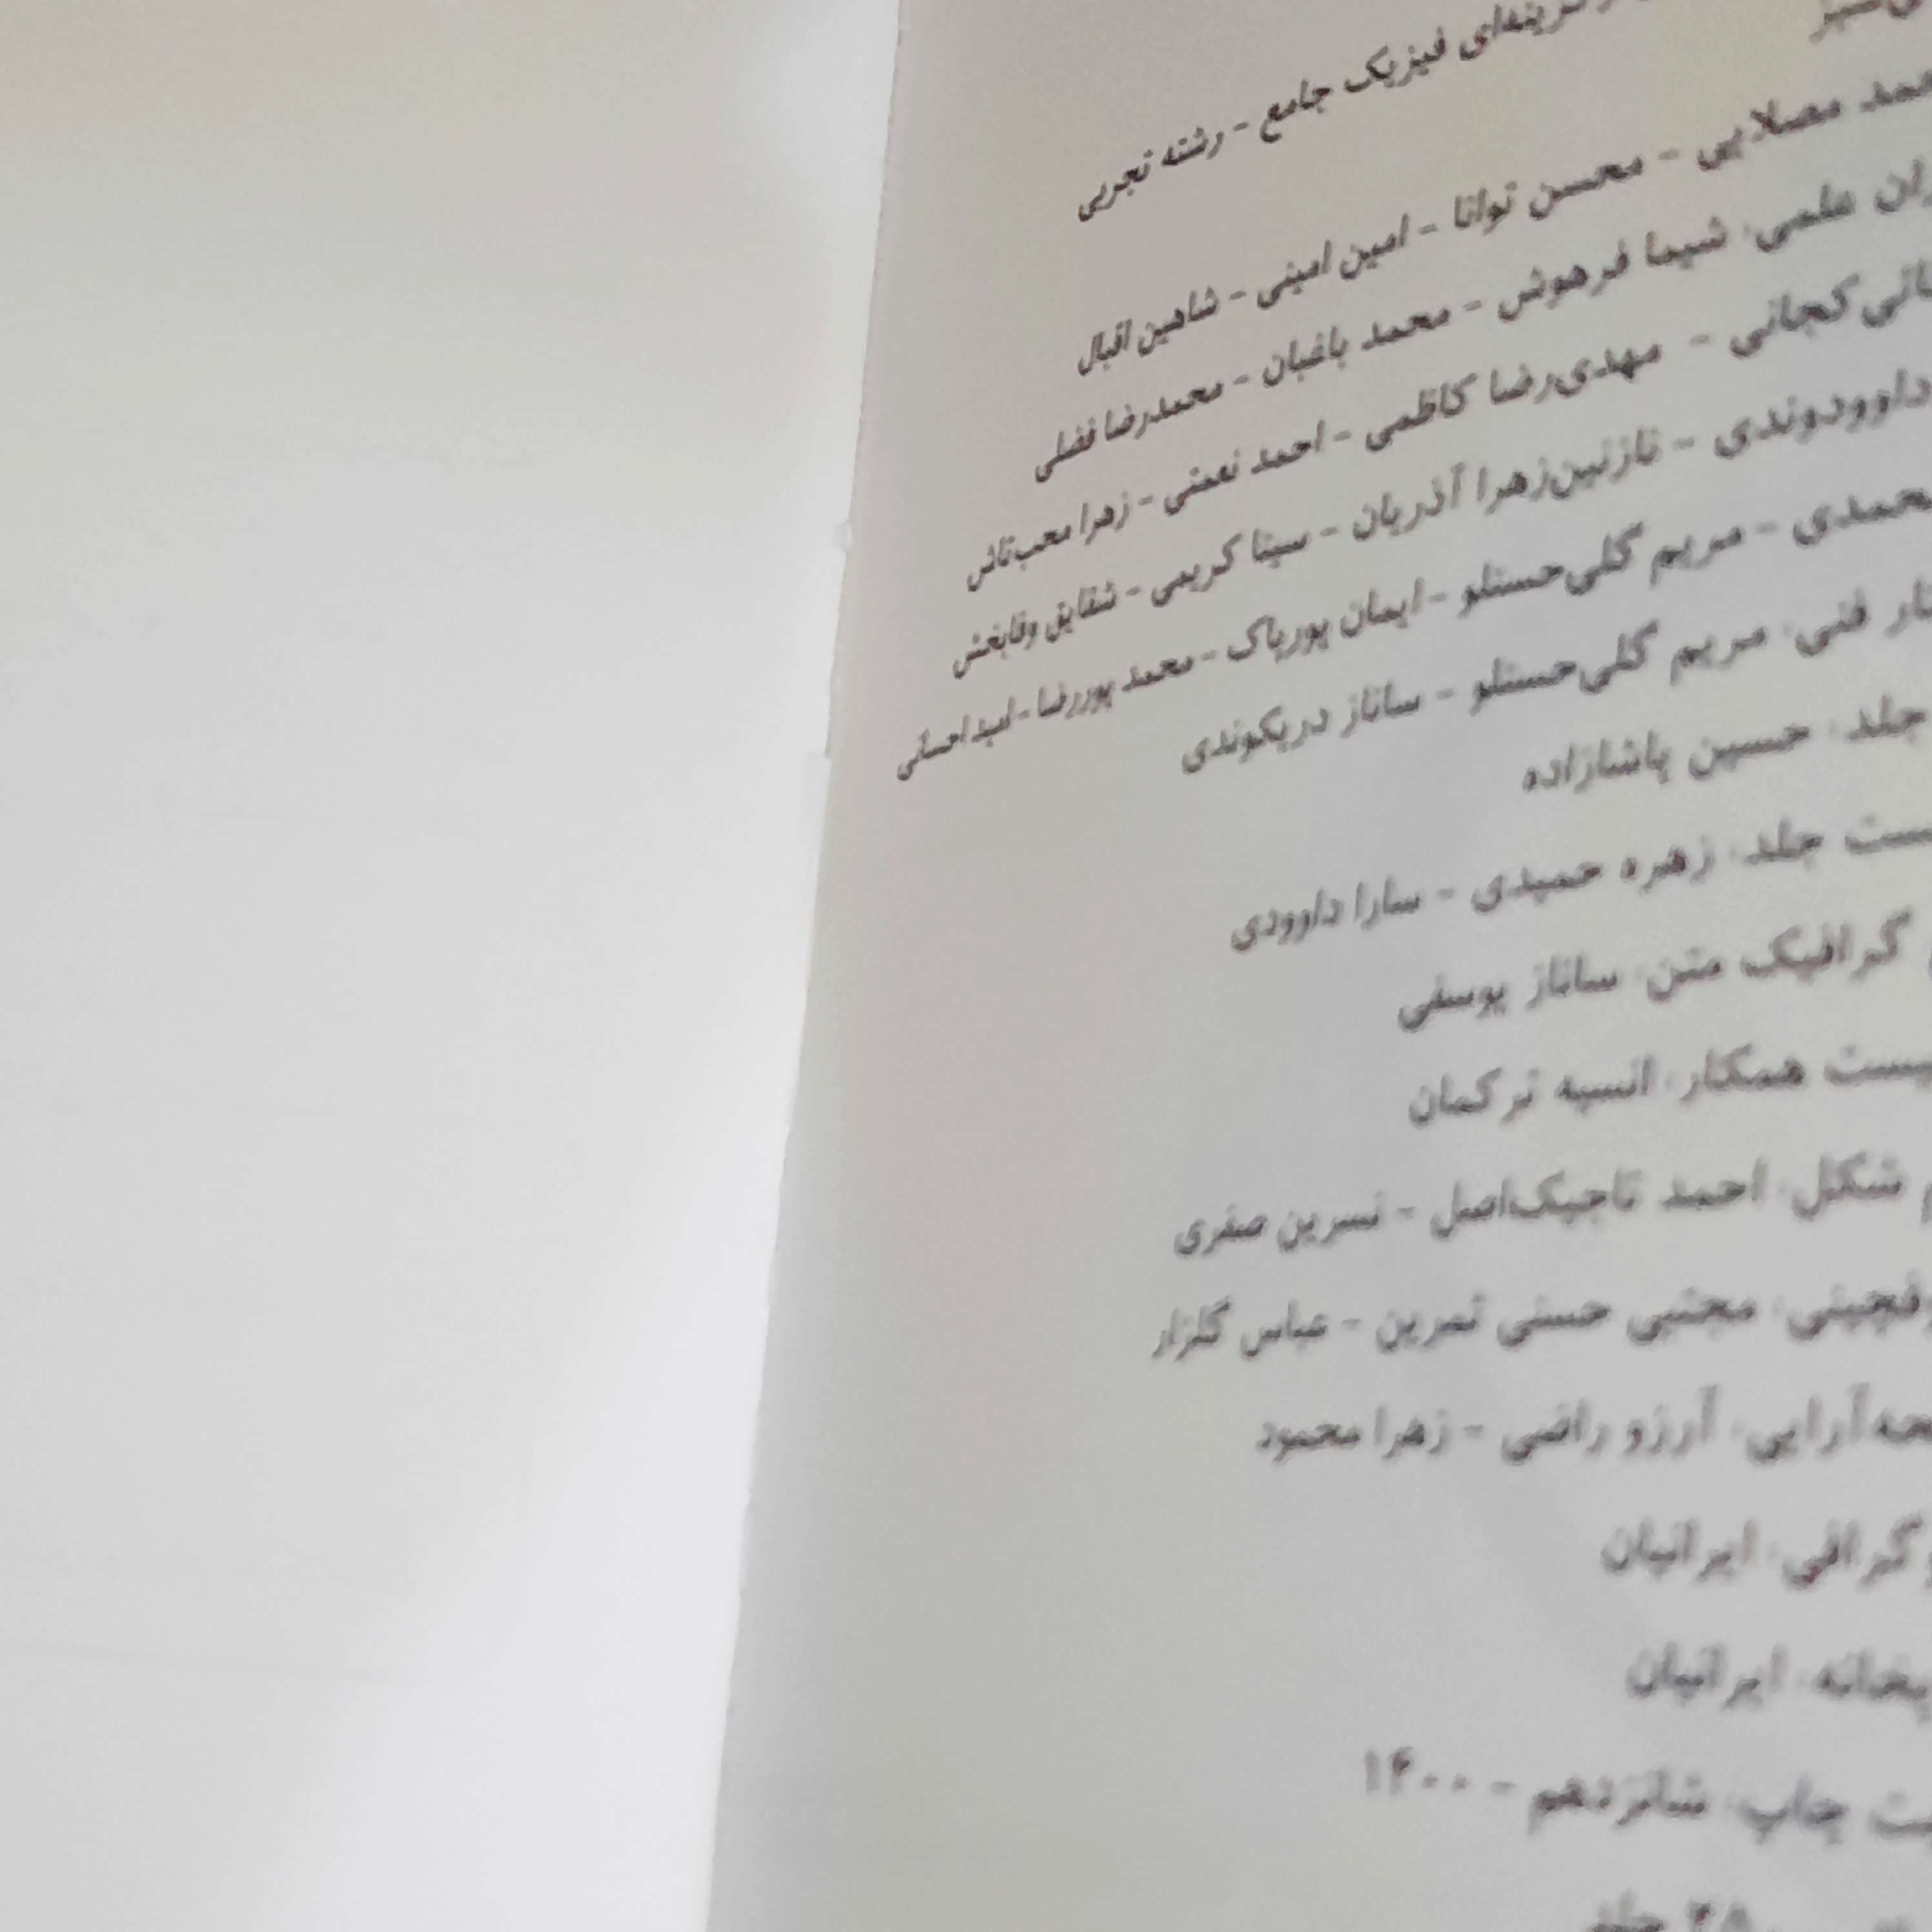 فیزیک جامع - رشته تجربی
مصلایی - محسن توانا - امین امینی - شاهین اقبال
علمی: شیما فرهوش - محمد باغبان - محمدرضا فضلی
کجانی - مهدی‌رضا کاظمی - احمد نعمتی - زهرا محب‌تاش
داوودوندی - نازنین‌زهرا آذریان - سینا کریمی - شقایق وفابخش
محمدی - مریم گلی‌حسنلو - ایمان پورپاک - محمد پوررضا - امید احسانی
فنی: مریم گلی‌حسنلو - ساناز دریکوندی
جلد: حسین پاشازاده
جلد: زهره حمیدی - سارا داوودی
گرافیک متن: ساناز یوسفی
همکار: انسیه ترکمان
شکل: احمد تاجیک‌اصل - نسرین صفری
مجتبی حسنی ثمرین - عباس گلزار
آرایی: آرزو راضی - زهرا محمود
گرافی: ایرانیان
ایرانیان
چاپ: شانزدهم - ۱۴۰۰
جلد